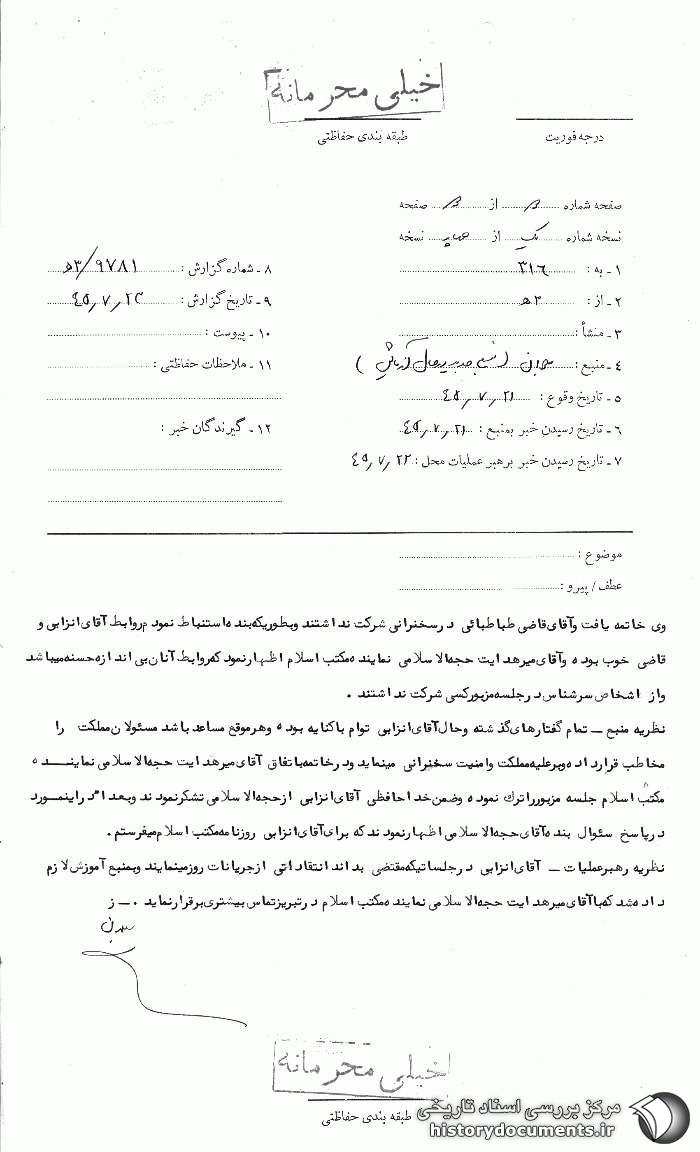 خیلی محرمانه
طبقه بندی حفاظتی
درجه فوریت
صفحه شماره ۲ از ۲ صفحه
نسخه شماره یک از نسخه
۱ ـ به : ۳۱۶
۲ ـ از : ۳ﻫ
۳ ـ منشأ :
۴ ـ منبع :
۵ ـ تاریخ وقوع : ۴۹٫۷٫۲۱
۶ ـ تاریخ رسیدن خبر بمنبع : ۴۹٫۷٫۲۱
۷ ـ تاریخ رسیدن خبر برهبر عملیات محل : ۴۹٫۷٫۲۲
۸ ـ شماره گزارش : ۹۷۸۱/ﻫ۳
۹ ـ تاریخ گزارش : ۴۹٫۷٫۲۳
۱۰ ـ پیوست :
۱۱ ـ ملاحظات حفاظتی :
۱۲ ـ گیرندگان خبر :
موضوع :
عطف / پیرو :
وی خاتمه یافت وآقای قاضی طباطبائی درسخنرانی شرکت نداشتند وبطوریکه بنده استنباط نمودم روابط آقای انزابی و
قاضی خوب بوده وآقای میرهدایت حجه الاسلامی نماینده مکتب اسلام اظهارنمود که روابط آنان بی اندازه حسنه میباشد
واز اشخاص سرشناس درجلسه مزبور کسی شرکت نداشتند .
نظریه منبع ـ تمام گفتارهای گذشته وحال آقای انزابی توام باکنایه بوده وهرموقع مساعد باشد مسئولان مملکت را
مخاطب قرارداده وبرعلیه مملکت وامنیت سخنرانی مینماید ودرخاتمه باتفاق آقای میرهدایت حجه الاسلامی نماینده
مکتب اسلام جلسه مزبور راترک نموده وضمن خداحافظی آقای انزابی ازحجه الاسلامی تشکرنمودند وبعداً دراینمورد
درپاسخ سئوال بنده آقای حجه الاسلامی اظهارنمودند که برای آقای انزابی روزنامه مکتب اسلام میفرستم .
نظریه رهبرعملیات ـ آقای انزابی درجلساتیکه مقتضی بداند انتقاداتی ازجریانات روزمینمایند وبمنبع آموزش لازم
داده شد که باآقای میرهدایت حجه الاسلامی نماینده مکتب اسلام درتبریزتماس بیشتری برقرارنماید . ـ ز
خیلی محرمانه
طبقه بندی حفاظتی
مرکز بررسی اسناد تاریخی
historydocuments.ir